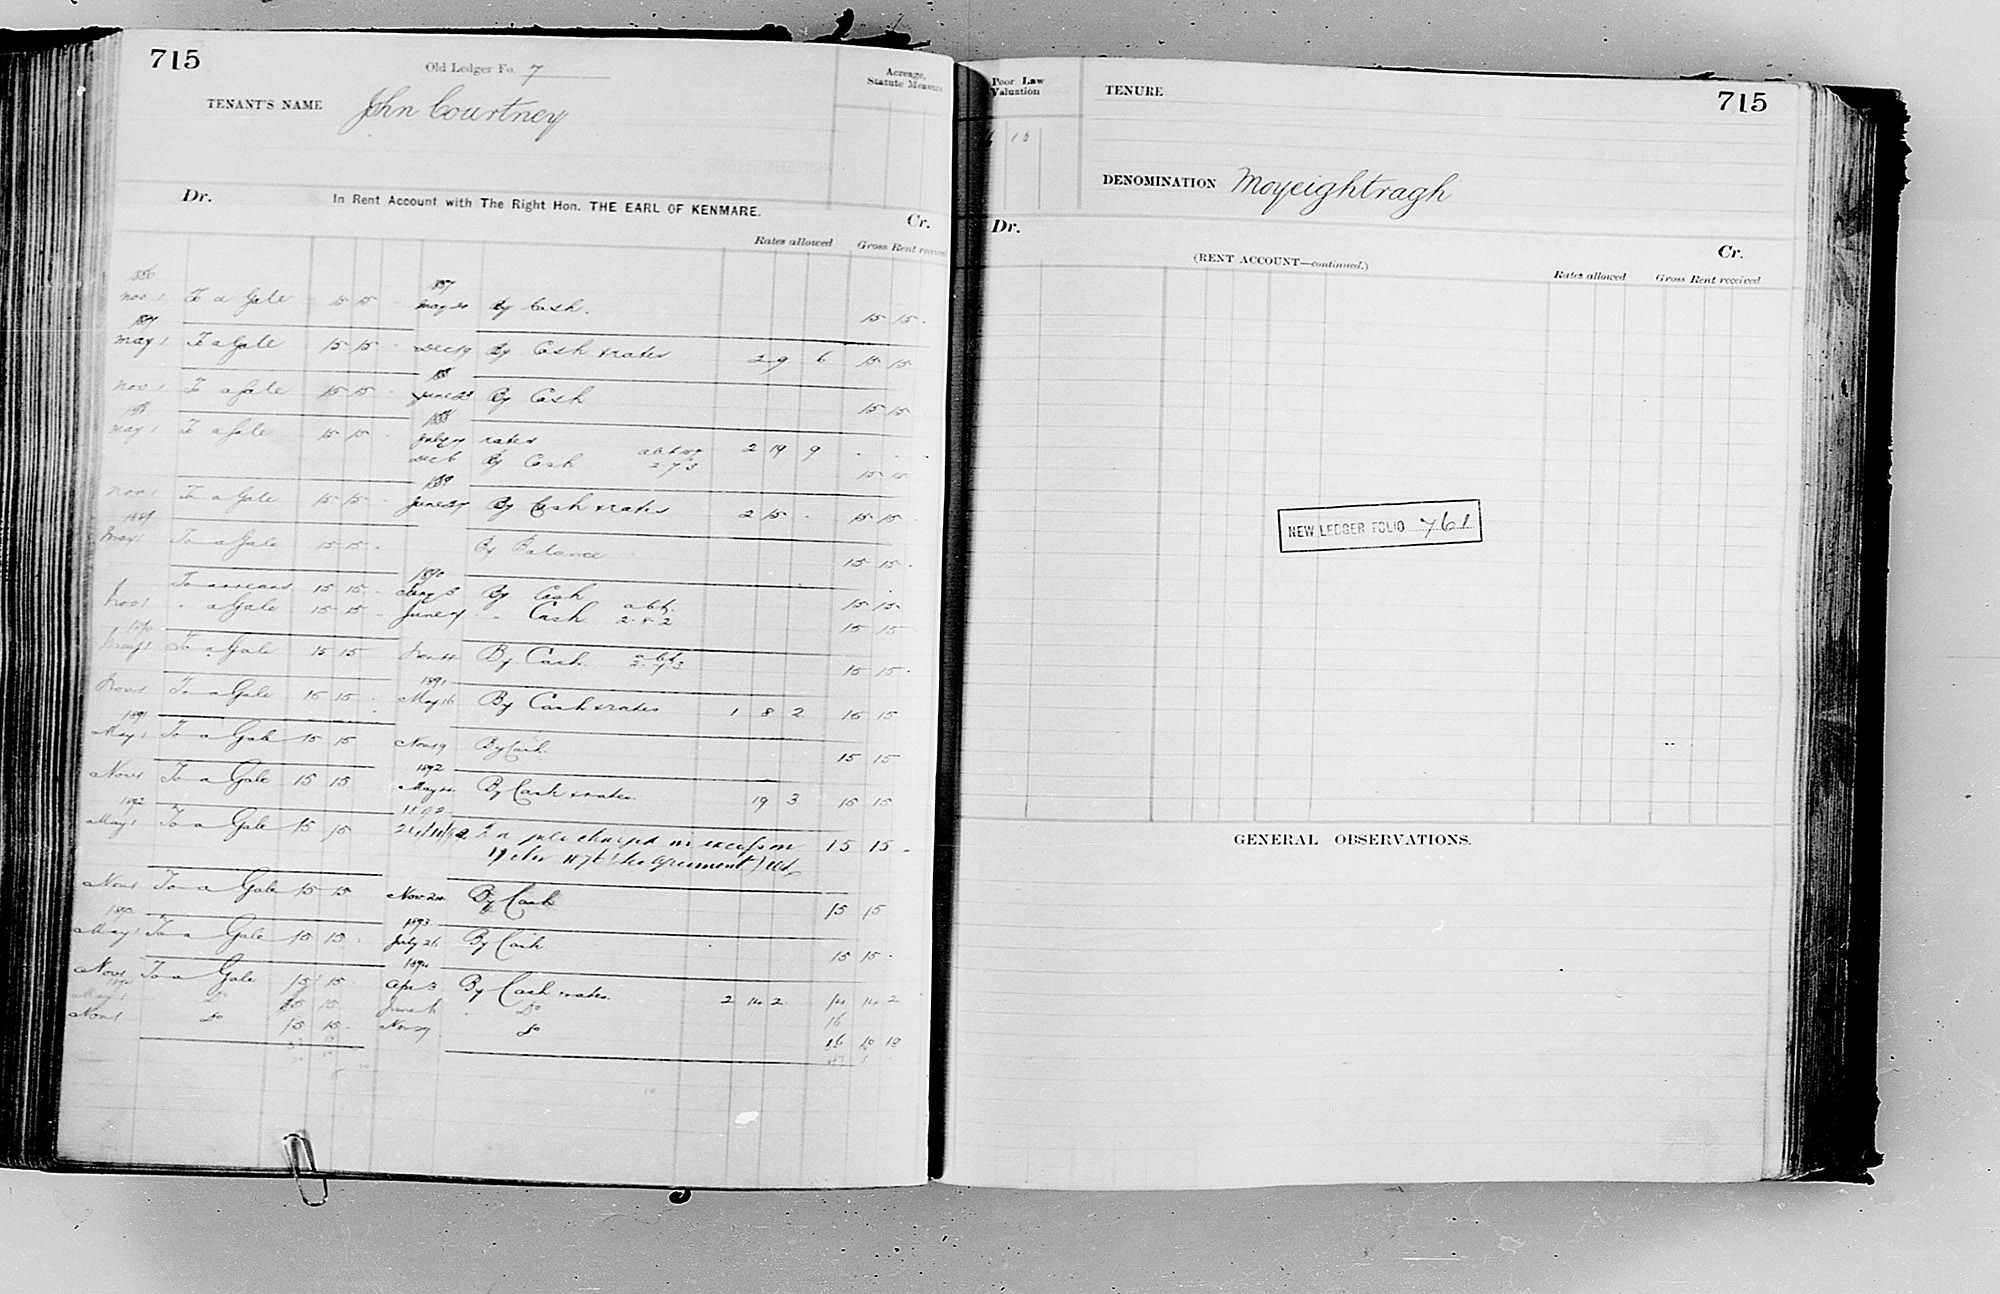 715
Old Ledger Fo. 7
Acreage, Statute Measure
TENANT'S NAME John Courtney
Dr. In Rent Account with The Right Hon. THE EARL OF KENMARE. Cr.
Rates allowed Gross Rent received
Nov 1 To a Gale 15 15 May 20 By Cash. 15 15
May 1 To a Gale 15 15 Dec 19 By Cash & rates 2 9 6 15 15
Nov 1 To a Gale 15 15 June 23 By Cash 15 15
1888
May 1 To a Gale 15 15 July rates 2 19 9
Dec 6 By Cash 2.7.3 15 15
1889
Nov 1 To a Gale 15 15 June 27 By Cash & rates 2 15 15 15
1889
May 1 To a Gale 15 15 By Balance 15 15
1890
To arrears 15 15 By Cash 15 15
Nov 1 " a Gale 15 15 June " Cash abt. 2.8.2 15 15
1890
May 1 To a Gale 15 15 By Cash abt. 2.7.3 15 15
1891
Nov 1 To a Gale 15 15 May 16 By Cash & rates 1 8 2 15 15
1891
May 1 To a Gale 15 15 Nov 19 By Cash 15 15
1892
Nov 1 To a Gale 15 15 May By Cash & rates 19 3 15 15
1892 1892
May 1 To a Gale 15 15 charged in excess on 15 15
1876 (See Agreement)
Nov 1 To a Gale 15 15 Nov By Cash 15 15
1893 1893
May 1 To a Gale 15 15 July 26 By Cash 15 15
1894
Nov 1 To a Gale 15 15 Apr 3 By Cash & rates 2 14 2 14 14 2
May 1 Do 15 15 June Do 16
Nov 1 do 15 15 Nov 29 do 16 10 10
Poor Law Valuation
TENURE
715
10
DENOMINATION Moyeightragh
Dr. Cr.
(RENT ACCOUNT—continued.)
Rates allowed Gross Rent received
NEW LEDGER FOLIO 761
GENERAL OBSERVATIONS.